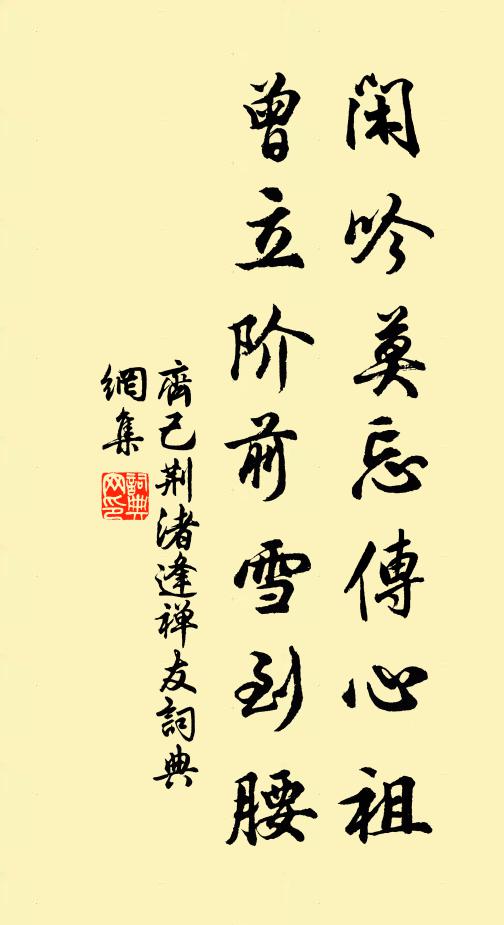 闲吟莫忘傳心祖
曾立阶前雪到腰
齊己荆渚逢禅友詞典
網集
詞典
网印